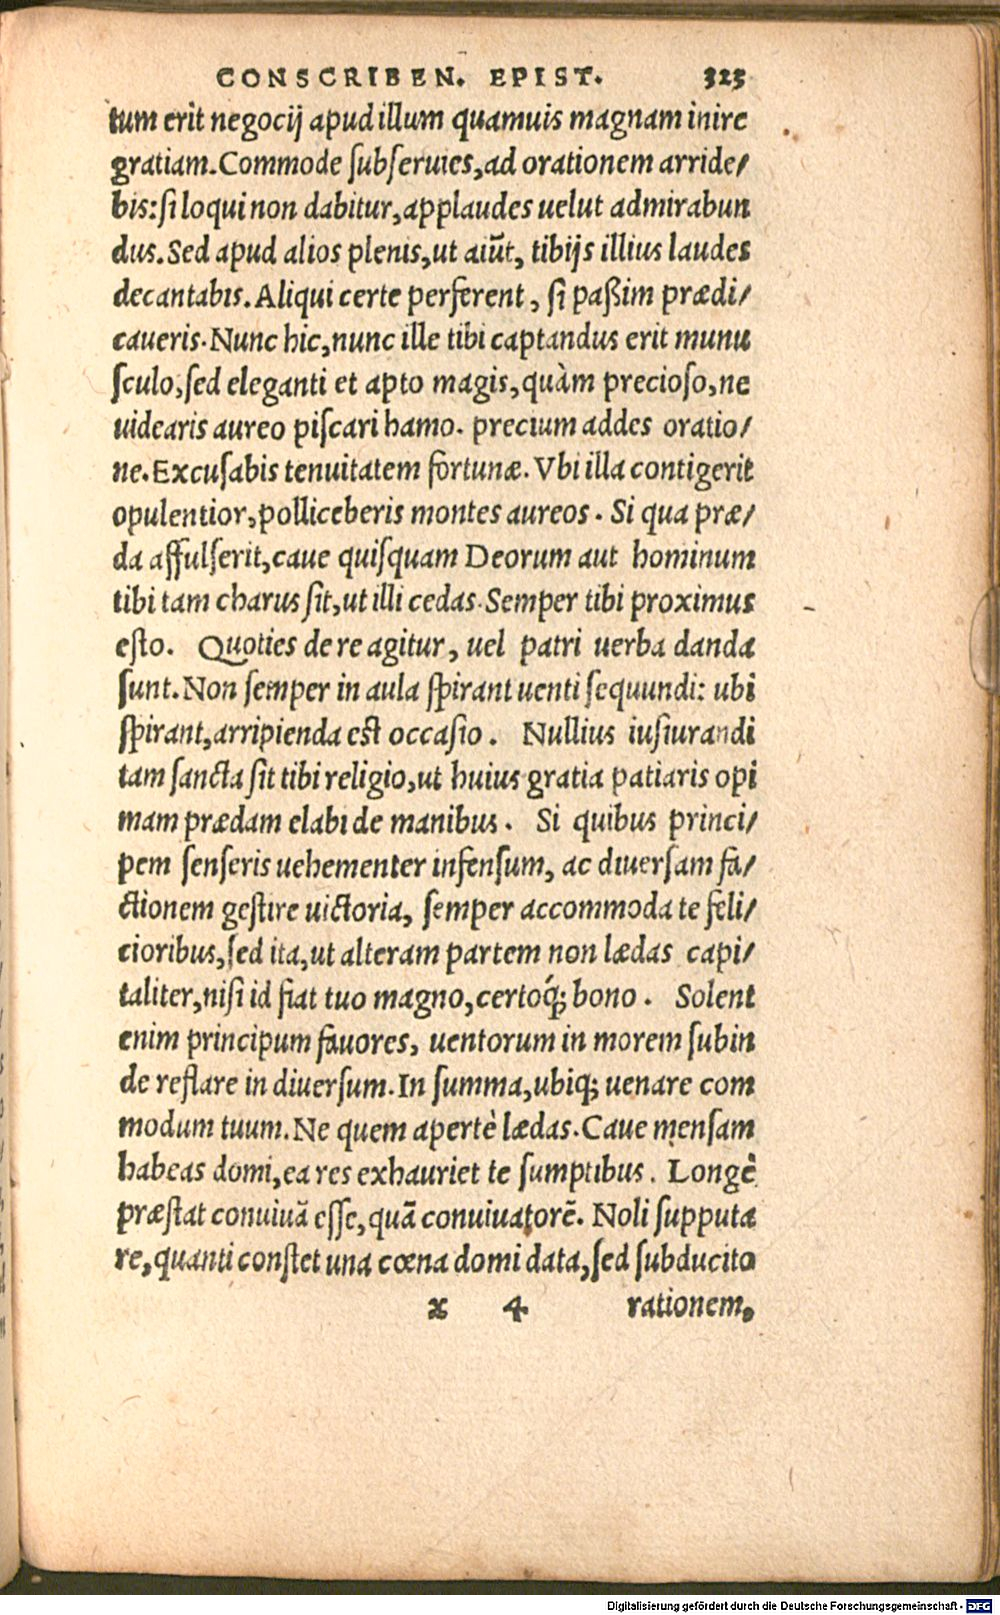 CONSCRIBEN. EPIST. 325
tum erit negocij apud illum quamuis magnam inire
gratiam. Commode subseruies, ad orationem arride/
bis: si loqui non dabitur, applaudes uelut admirabun
dus. Sed apud alios plenis, ut aiũt, tibijs illius laudes
decantabis. Aliqui certe perferent, si paßim prædi/
caueris. Nunc hic, nunc ille tibi captandus erit munu
sculo, sed eleganti et apto magis, quàm precioso, ne
uidearis aureo piscari hamo. precium addes oratio/
ne. Excusabis tenuitatem fortunæ. Vbi illa contigerit
opulentior, polliceberis montes aureos. Si qua præ/
da affulserit, caue quisquam Deorum aut hominum
tibi tam charus sit, ut illi cedas. Semper tibi proximus
esto. Quoties de re agitur, uel patri uerba danda
sunt. Non semper in aula spirant uenti sequundi: ubi
spirant, arripienda est occasio. Nullius iusiurandi
tam sancta sit tibi religio, ut huius gratia patiaris opi
mam prædam elabi de manibus. Si quibus princi/
pem senseris uehementer infensum, ac diuersam fa/
ctionem gestire uictoria, semper accommoda te feli/
cioribus, sed ita, ut alteram partem non lædas capi/
taliter, nisi id fiat tuo magno, certoq́; bono. Solent
enim principum fauores, uentorum in morem subin
de reflare in diuersum. In summa, ubiq; uenare com
modum tuum. Ne quem apertè lædas. Caue mensam
habeas domi, ea res exhauriet te sumptibus. Longè
præstat conuiuã esse, quã conuiuatorẽ. Noli supputa
re, quanti constet una cœna domi data, sed subducito
x 4 rationem,
Digitalisierung gefördert durch die Deutsche Forschungsgemeinschaft - DFG